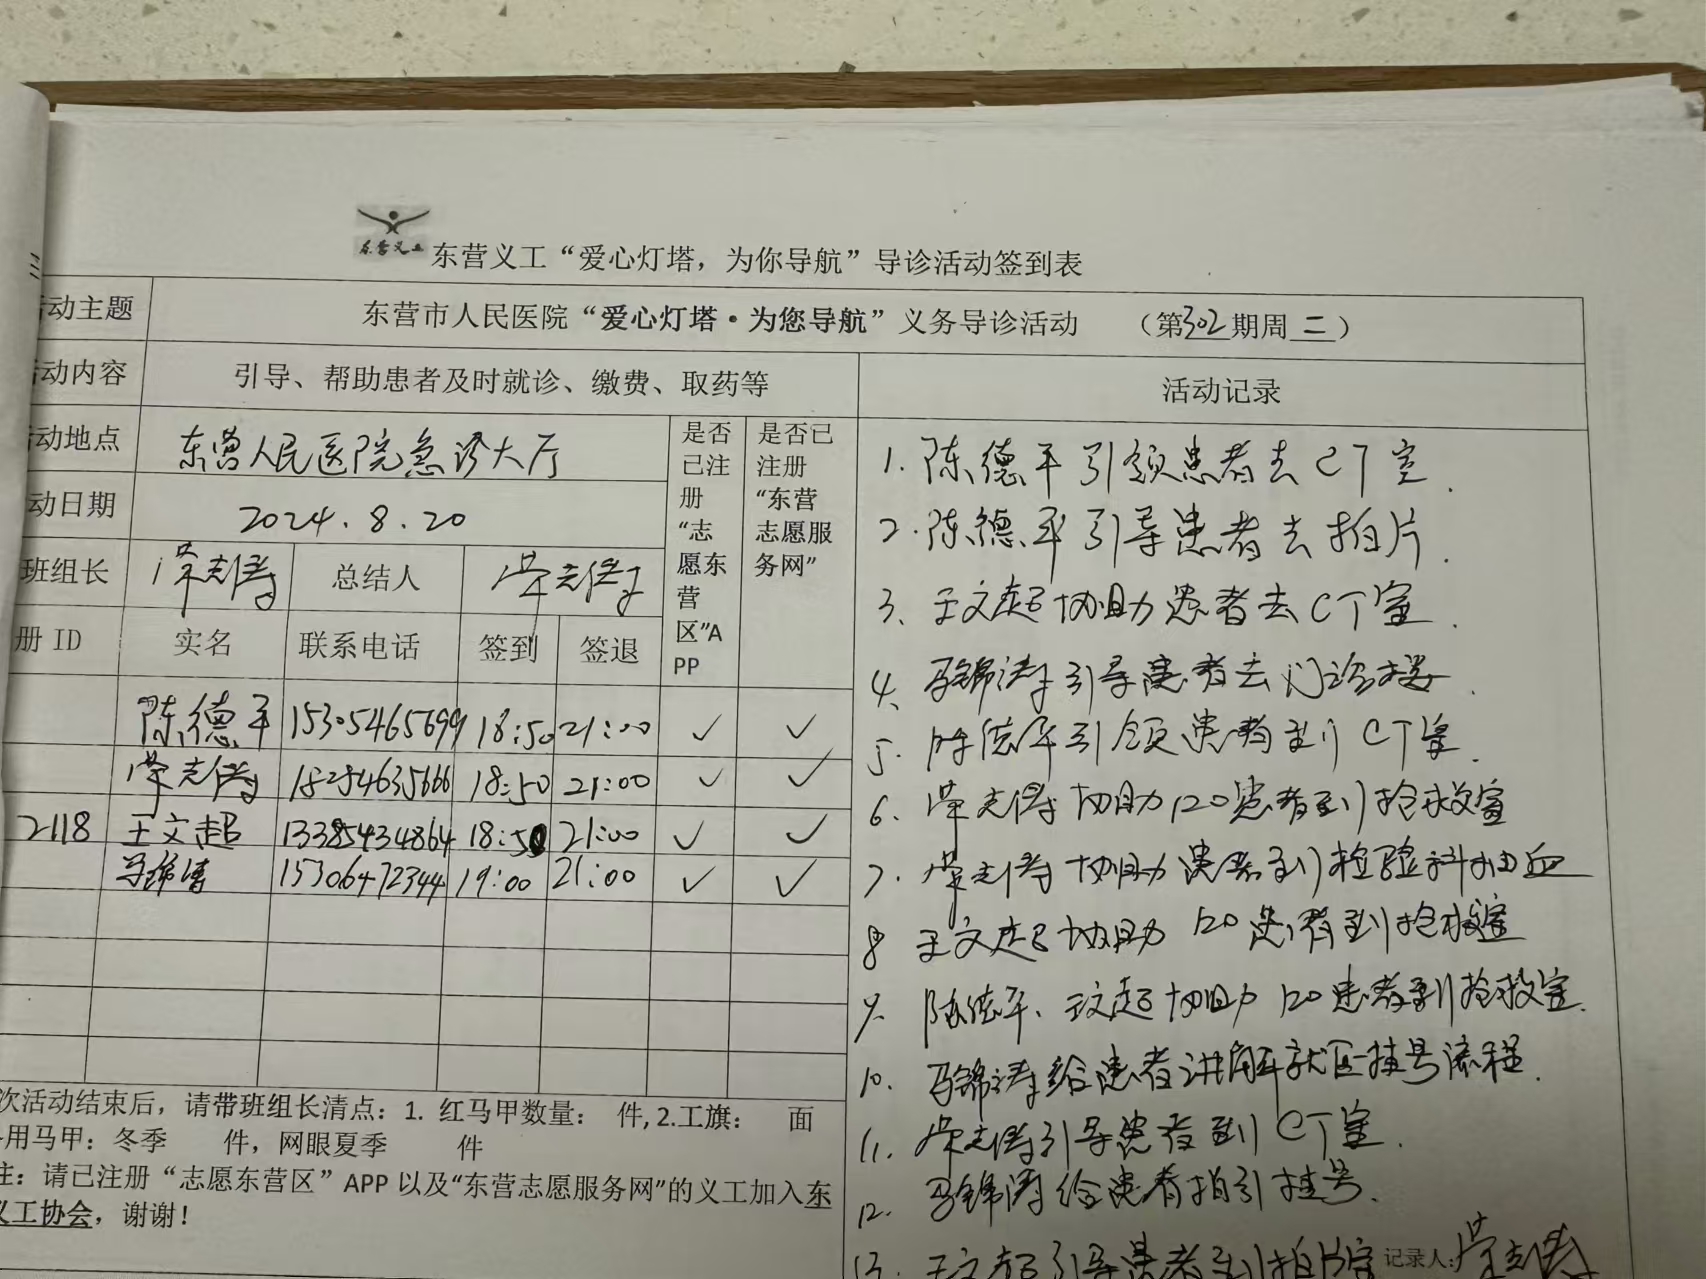 东营义工
东营义工“爱心灯塔，为你导航”导诊活动签到表
动主题 东营市人民医院“爱心灯塔·为您导航”义务导诊活动 （第302期周二）
动内容 引导、帮助患者及时就诊、缴费、取药等 活动记录
动地点 东营人民医院急诊大厅
是否已注册“志愿东营区”APP
是否已注册“东营志愿服务网”
动日期 2024.8.20
班组长 荣志涛 总结人 荣志涛
册ID 实名 联系电话 签到 签退
陈德平 15305465699 18:50 21:00 ✓ ✓
荣志涛 18254635666 18:50 21:00 ✓ ✓
2118 王文超 13385434864 18:50 21:00 ✓ ✓
马锦涛 15306472344 19:00 21:00 ✓ ✓
次活动结束后，请带班组长清点：1. 红马甲数量： 件,2.工旗： 面
用马甲：冬季 件，网眼夏季 件
注：请已注册“志愿东营区”APP以及“东营志愿服务网”的义工加入东
义工协会，谢谢！
1. 陈德平引领患者去CT室.
2. 陈德平引导患者去拍片.
3、王文超协助患者去CT室.
4、马锦涛引导患者去门诊楼.
5. 陈德平引领患者到CT室.
6. 荣志涛协助120患者到抢救室
7. 荣志涛协助患者到检验科抽血
8 王文超协助120患者到抢救室
9. 陈德平、王文超协助120患者到抢救室.
10. 马锦涛给患者讲解就医挂号流程.
11. 荣志涛引导患者到CT室.
12. 马锦涛给患者指引挂号.
13. 王文超引导患者到拍片室 记录人:荣志涛